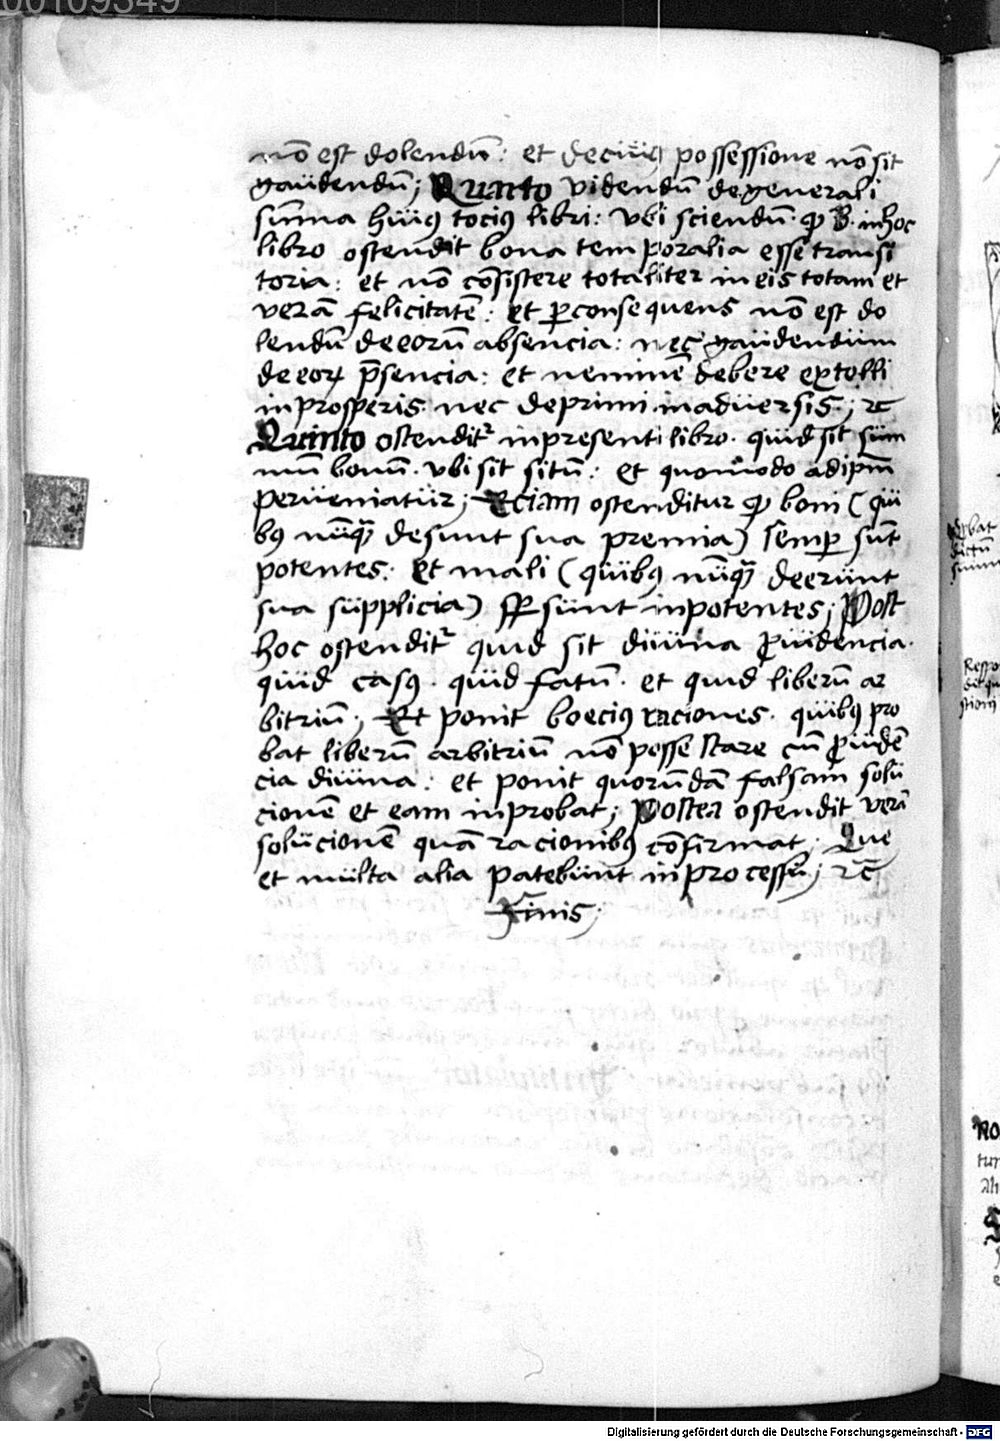 00109349
nō est dolendū: et de cuiꝰ possessione nō sit
gaüdendū; Quarto videndū de generali
sūma hüiꝰ tociꝰ libri: vbi sciendū ꝙ B. in hoc
libro ostendit bona temporalia esse transi
toria: et nō cōsistere totaliter in eis totam et
verā felicitatē: et ꝑ consequens nō est do
lendū de eorū absencia: nec gaüdendüm
de eoꝝ p̄sencia: et neminē debere extolli
in prosperis nec deprimi in adüersis; ⁊c̄
Quinto ostenditᷣ in presenti libro. quid sit süm
mū bonū. vbi sit sitū: et quomodo ad ip̄m
perüeniatür; Eciam ostenditur ꝙ boni (qüi
bꝰ nūqꝫ desunt sua premia) semꝑ sūt
potentes: et mali (qüibꝰ nūqꝫ deerünt
sua süpplicia) sꝑ sünt inpotentes; Post
hoc ostenditᷣ quid sit diüina ꝓüidencia.
qüid casꝰ. qüid fatū. et quid liberū ar
bitriū; Et ponit boeciꝰ raciones. qüibꝰ pro
bat liberū arbitriū nō posse stare cū ꝓüidē
cia diüina: et ponit quorūdā falsam solü
cionē et eam inprobat; Postea ostendit verā
solücionē quā racionibꝰ cōfirmat; Que
et mülta alia patebünt in processü; ⁊c̄
Finis;
Digitalisierung gefördert durch die Deutsche Forschungsgemeinschaft - DFG